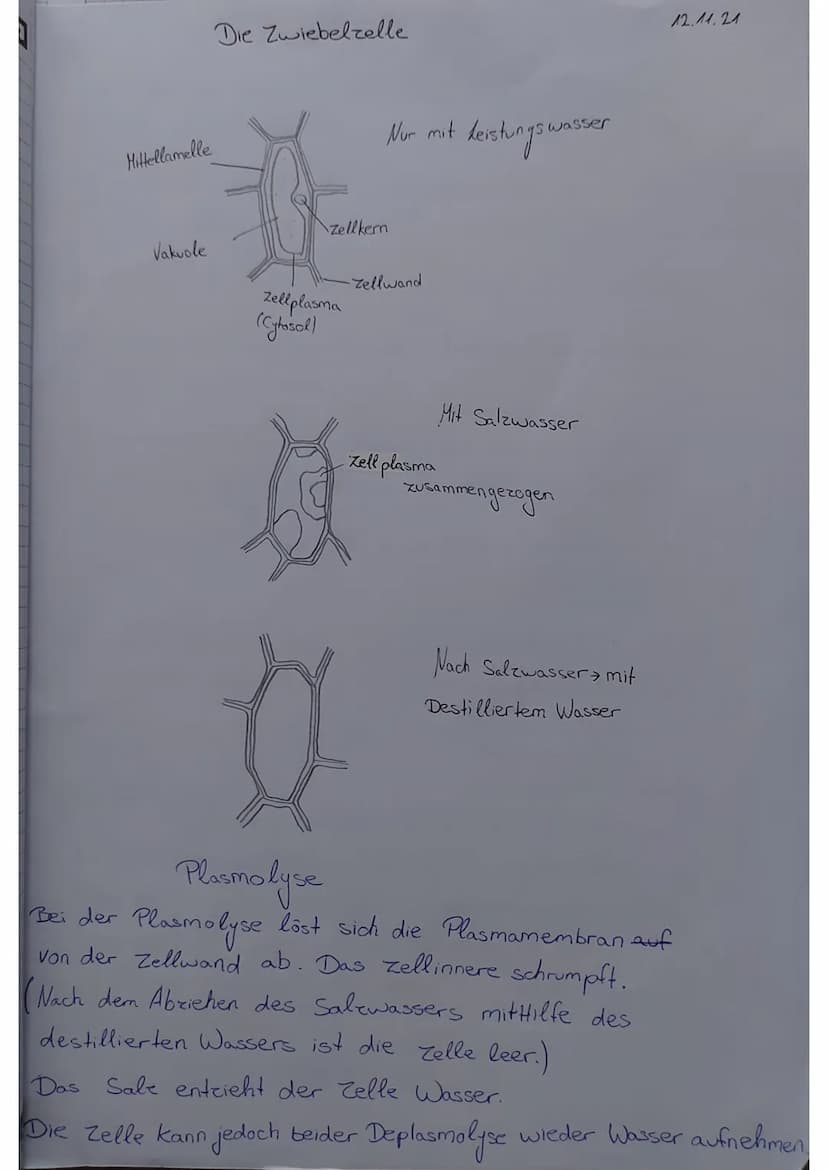 Die Zwiebelzelle
12.11.21
Nur mit Leistungswasser
Mittellamelle
Vakuole
Zellkern
Zellwand
Zellplasma
(Cytosol)
Mit Salzwasser
Zellplasma
zusammengezogen
Nach Salzwasser → mit
Destilliertem Wasser
Plasmolyse
Bei der Plasmolyse löst sich die Plasmamembran auf
von der Zellwand ab. Das Zellinnere schrumpft.
(Nach dem Abziehen des Salzwassers mitHilfe des
destillierten Wassers ist die Zelle leer.)
Das Salz entzieht der Zelle Wasser.
Die Zelle kann jedoch beider Deplasmolyse wieder Wasser aufnehmen